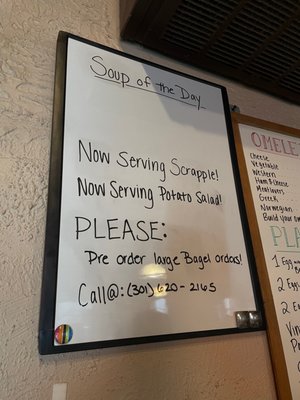 Soup of the Day
Now Serving Scrapple!
Now Serving Potato Salad!
PLEASE:
Pre order large Bagel orders!
Call@: (301) 620-2165
OMELE
Cheese
Vegetable
Western
Ham & Cheese
Meatlovers
Greek
Norwegian
Build your ow
PLA
1 Egg
2 E
2 Egg
2 E